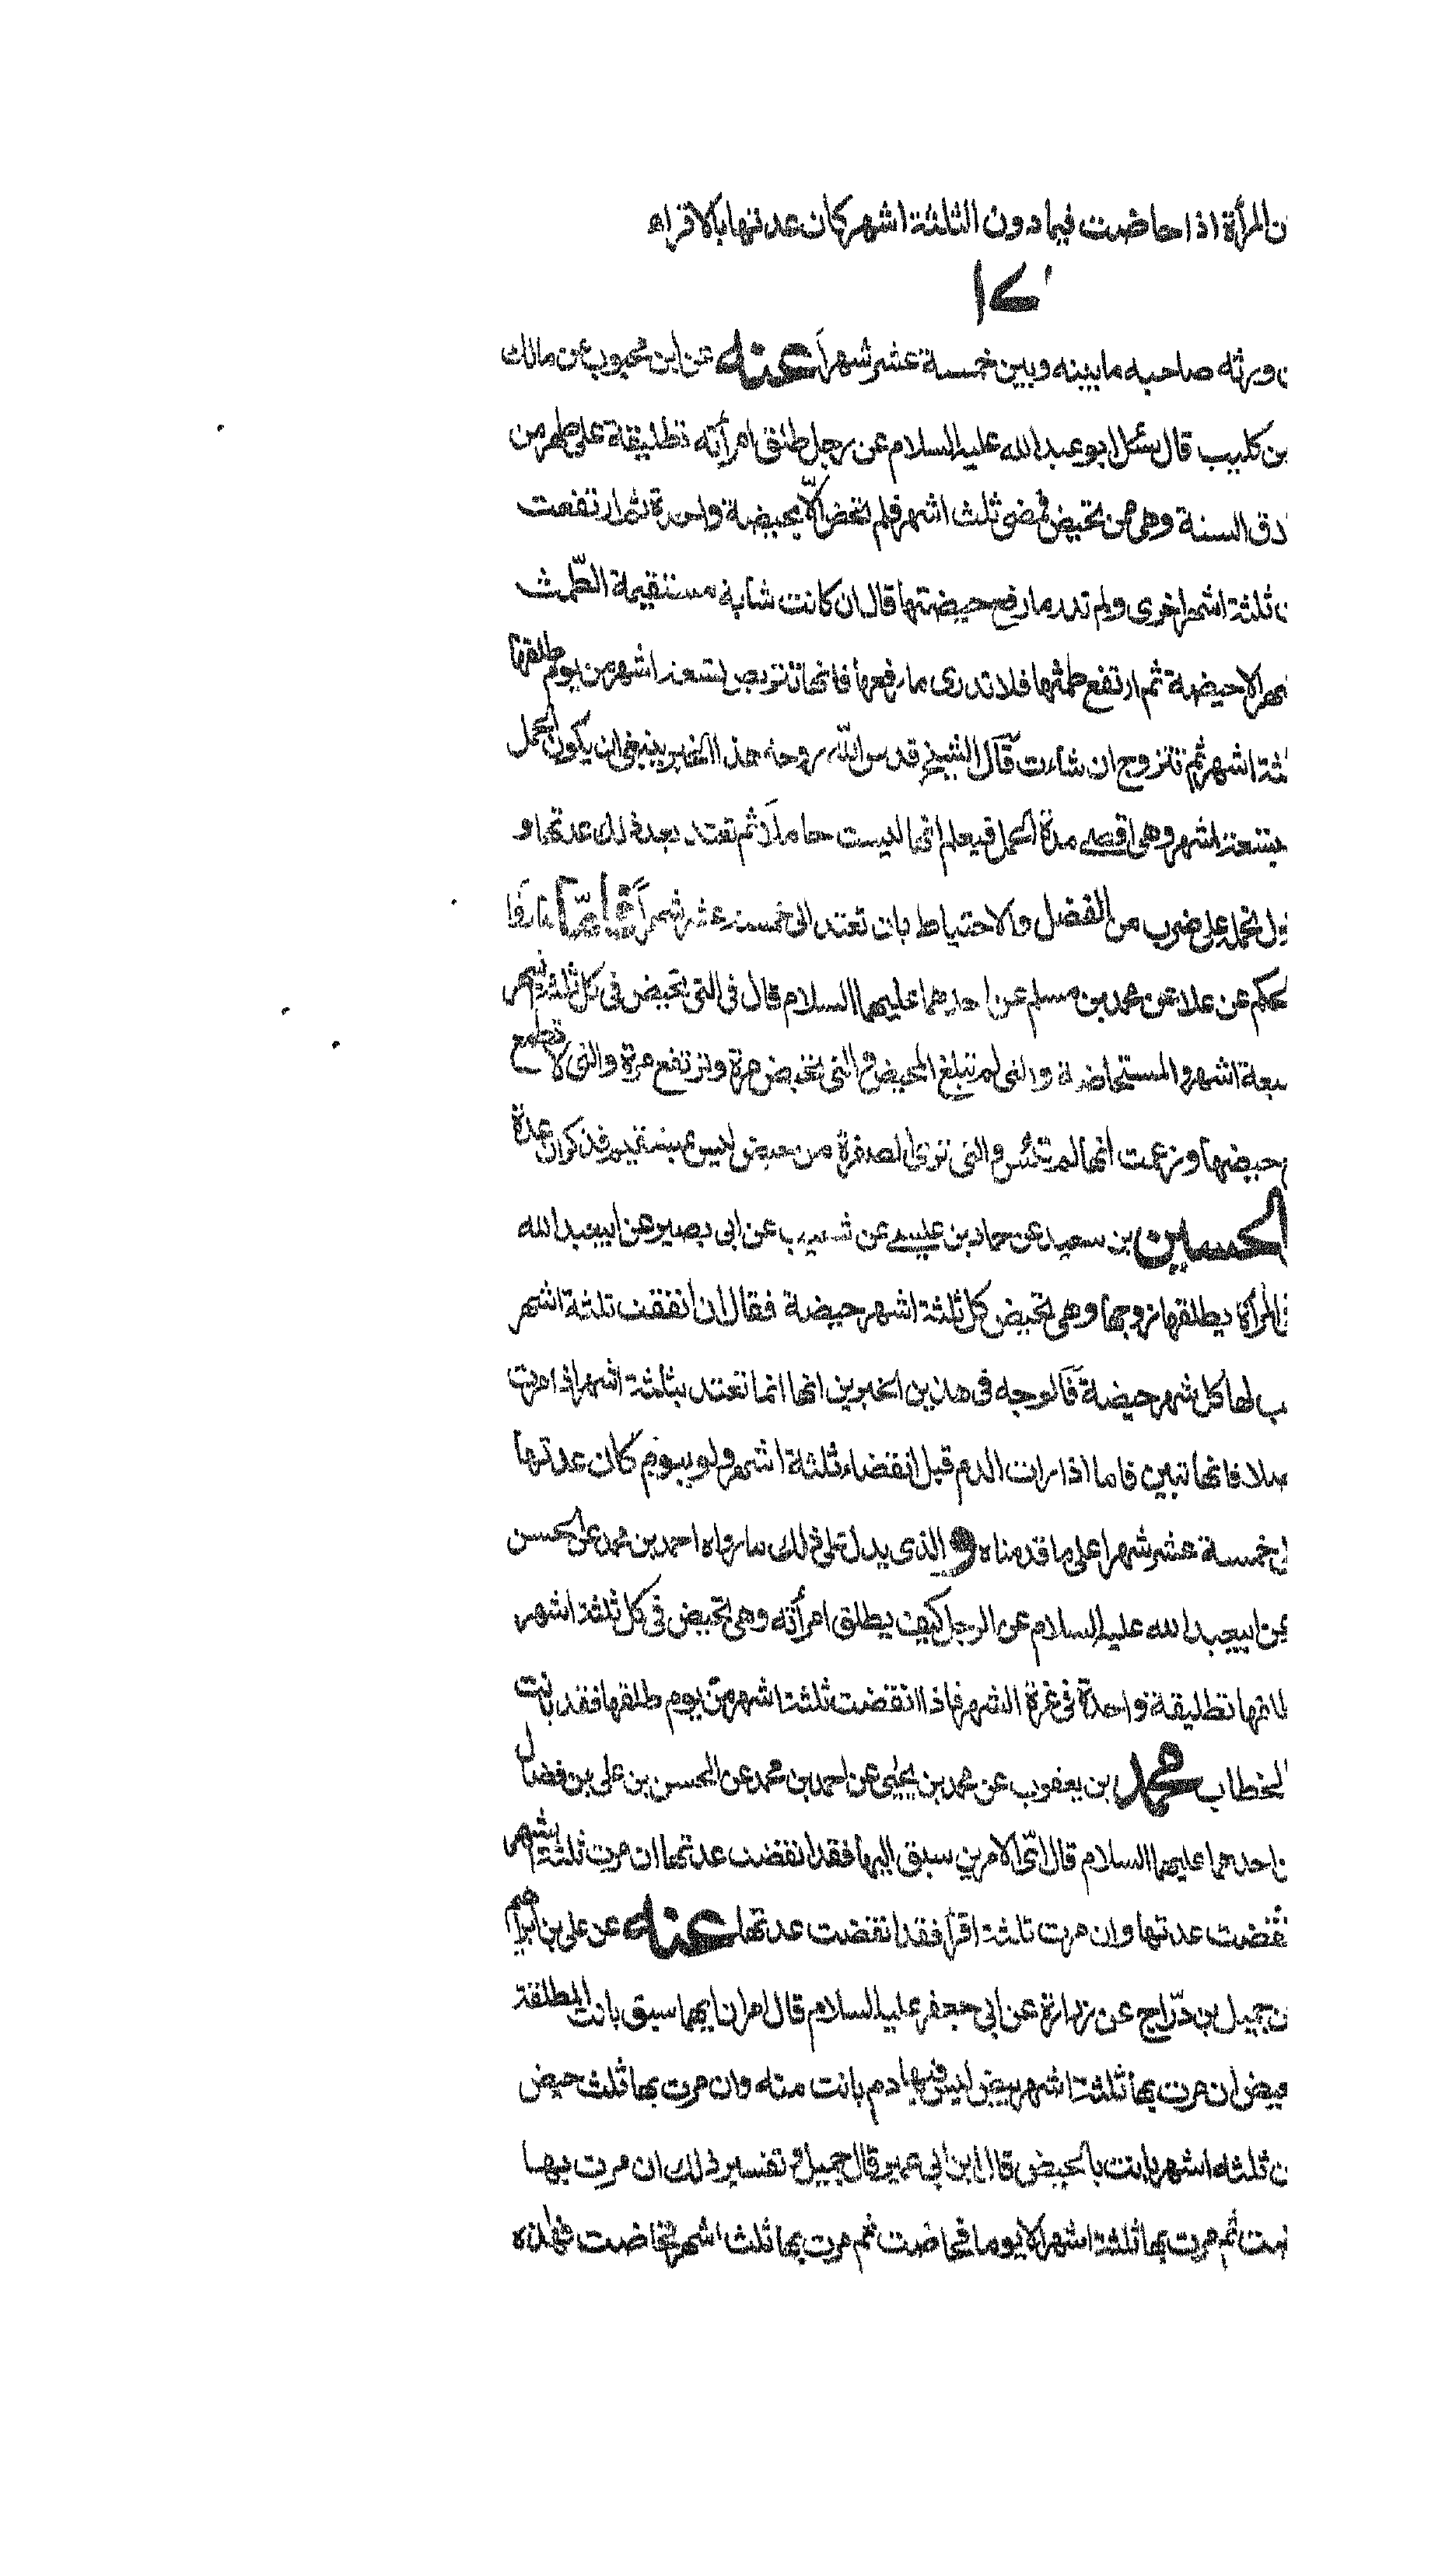 ن المرأة اذا حاضت فيما دون الثلثة اشهر كان عدتها بالاقراء
ن ورثه صاحبه ما بينه وبين خمسة عشر شهراً عنه عن ابن محبوب عن مالك
بن كليب قال سئل ابو عبدالله عليه السلام عن رجل طلق امرأته تطليقة على طهر من
السنة وهي ممن تحيض فمضى ثلث اشهر فلم تحض الّا بحيضة واحدة ثم ارتفعت
ن ثلثة اشهر اخرى ولم تدر ما رفع حيضتها قال ان كانت شابة مستقيمة الطّمث
الا حيضة ثم ارتفع طمثها فلا تدرى ما رفعها فانها تتربص تسعة اشهر من يوم طلقها
ثة اشهر ثم تتزوج ان شاءت قال الشيخ قدس الله روحه هذا الخبر ينبغى ان يكون العمل
تسعة اشهر وهى اقصى مدة الحمل فيعلم انها ليست حاملاً ثم تعتد بعد ذلك عدتها و
نحمله على ضرب من الفضل والاحتياط بان تعتد الى خمسة عشر شهراً فامّا ما رواه
لحكم عن علا عن محمد بن مسلم عن احدهما عليهما السلام قال فى التى تحيض فى كل ثلثة اشهر
سبعة اشهر والمستحاضة والتى لم تبلغ المحيض والتى تحيض مرة وترتفع مرة والتى لا تطمع
حيضها وزعمت انها لم تيئس والتى ترى الصفرة من حيض ليس بمستقيم فذكر ان عدة
الحسين بن سعيد عن حماد بن عيسى عن شعيب عن ابى بصير عن ابيعبدالله
المرأة يطلقها زوجها وهى تحيض كل ثلثة اشهر حيضة فقال اذا انقضت ثلثة اشهر
ب لها كل شهر حيضة فالوجه فى هذين الخبرين انها انما تعتد بثلثة اشهر اذا مرت
فانها تبين فاما اذا رات الدم قبل انقضاء ثلثة اشهر ولو بيوم كان عدتها
خمسة عشر شهرا على ما قدمناه و الذى يدل على ذلك ما رواه احمد بن محمد عن الحسن
عن ابيعبدالله عليه السلام عن الرجل كيف يطلق امرأته وهى تحيض فى كل ثلثة اشهر
تطليقة واحدة فى غرة الشهر فاذا انقضت ثلثة اشهر من يوم طلقها فقد بانت
الخطاب محمد بن يعقوب عن محمد بن يحيى عن احمد بن محمد عن الحسن بن على بن فضال
ن احدهما عليهما السلام قال اىّ الامرين سبق اليها فقد انقضت عدتها ان مرت ثلثة اشهر
نقضت عدتها وان مرت ثلثة اقرأ فقد انقضت عدتها عنه عن على بن ابراهيم
ن جميل بن درّاج عن زرارة عن ابى جعفر عليه السلام قال امران ايهما سبق بانت المطلقة
ان مرت بها ثلثة اشهر بيض ليس فيها دم بانت منه وان مرت بها ثلث حيض
ن ثلثه اشهر بانت بالحيض قال ابن ابى عمير قال جميل وتفسير ذلك ان مرت بها
ضت ثم مرت بها ثلثة اشهر الا يوما فحاضت ثم مرت بها ثلث اشهر فحاضت فهذه